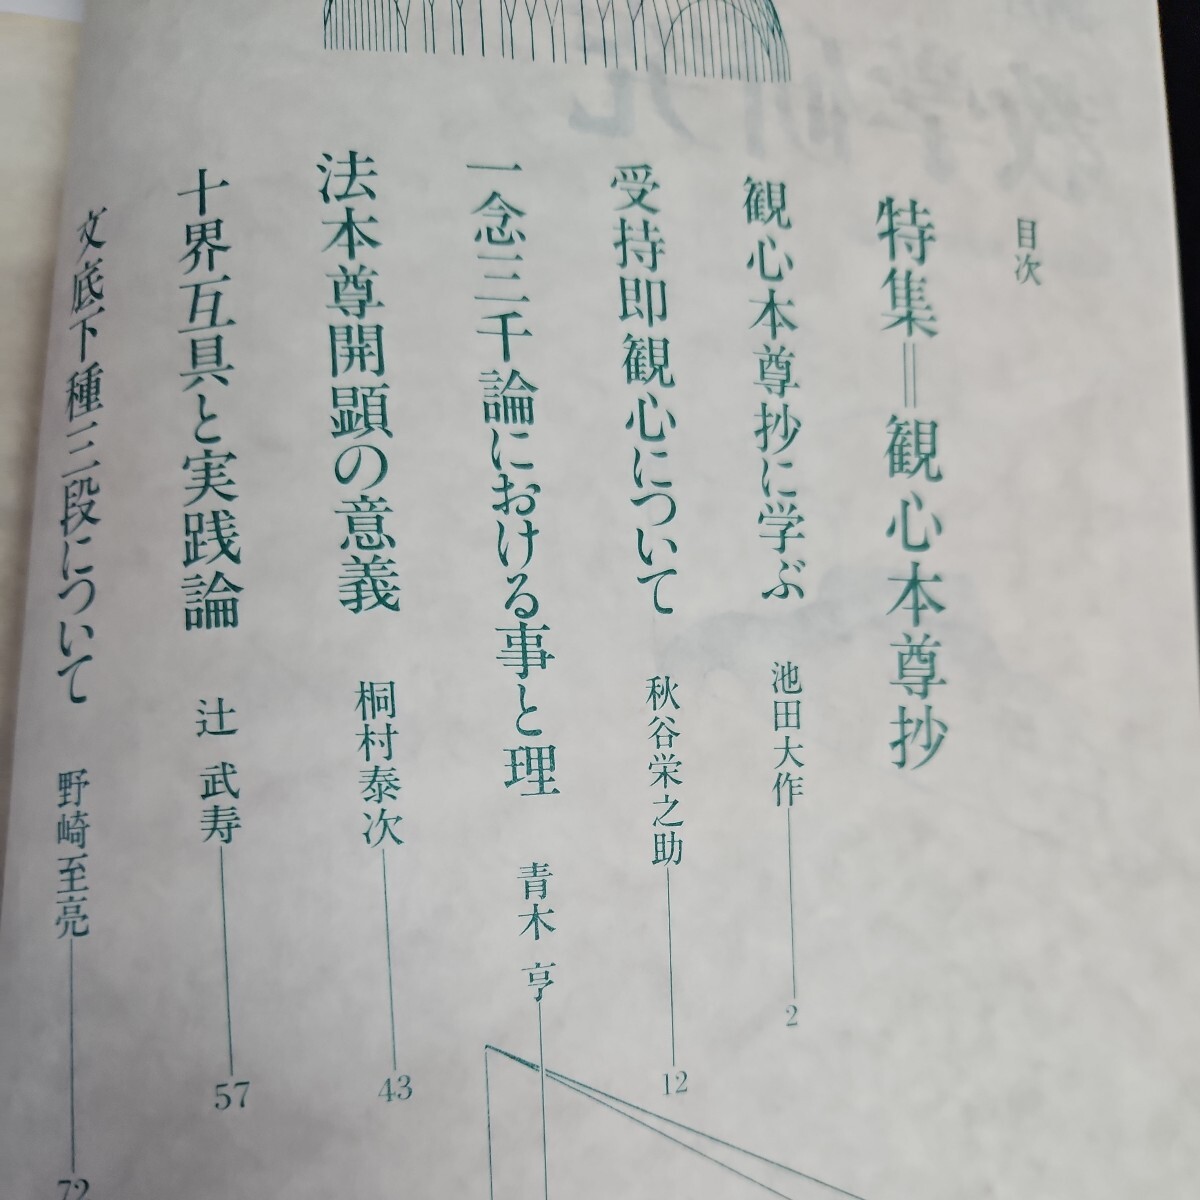 目次
特集＝観心本尊抄
観心本尊抄に学ぶ 池田大作 2
受持即観心について 秋谷栄之助 12
一念三千論における事と理 青木 亨
法本尊開顕の意義 桐村泰次 43
十界互具と実践論 辻 武寿 57
文底下種三段について 野崎至亮 72